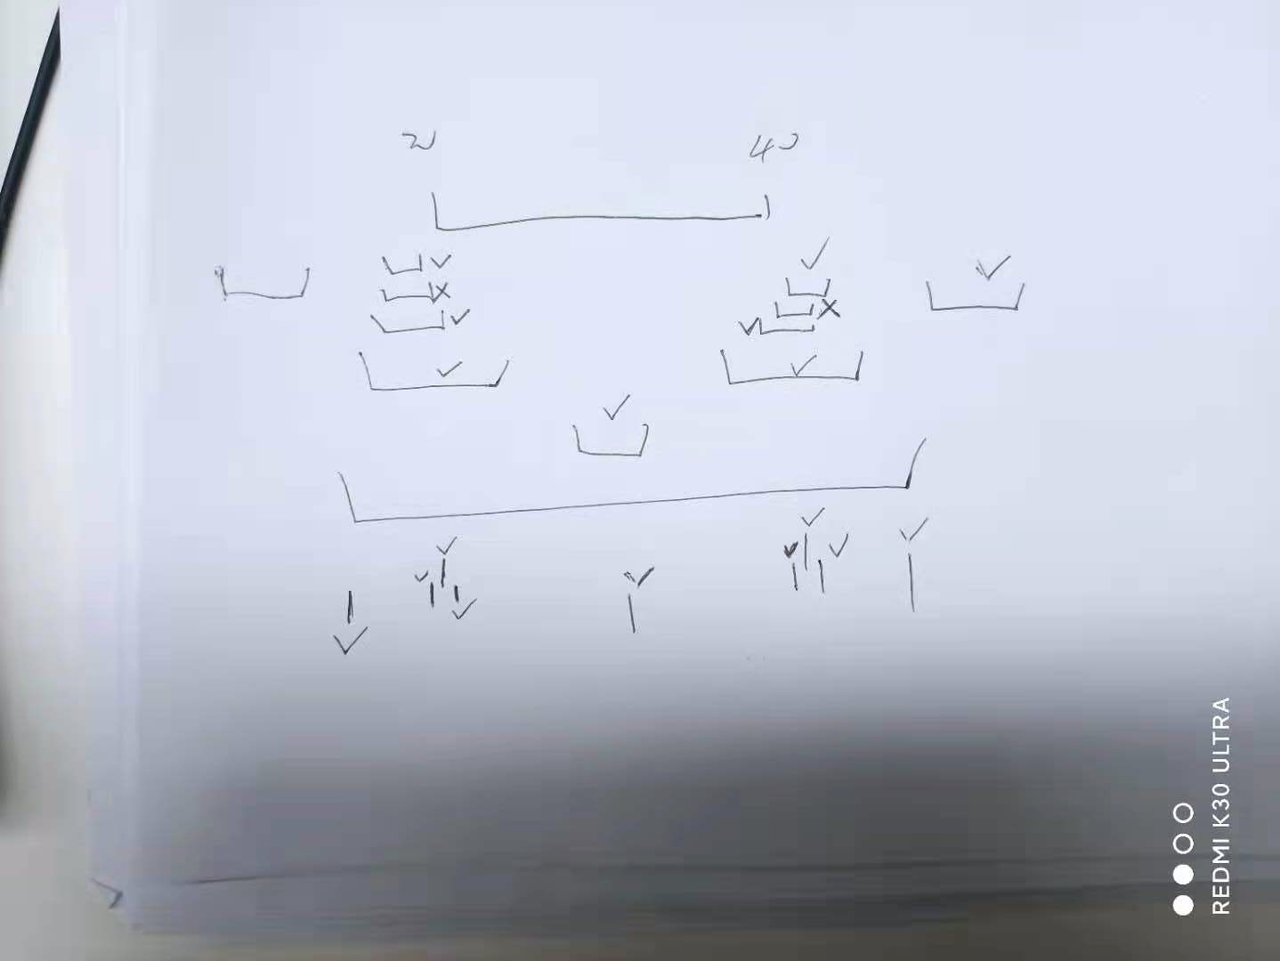 20 40
✓
✓ ✓
× ×
✓ ✓
✓ ✓
✓
✓ ✓ ✓
✓ ✓ ✓ ✓
✓
✓
REDMI K30 ULTRA